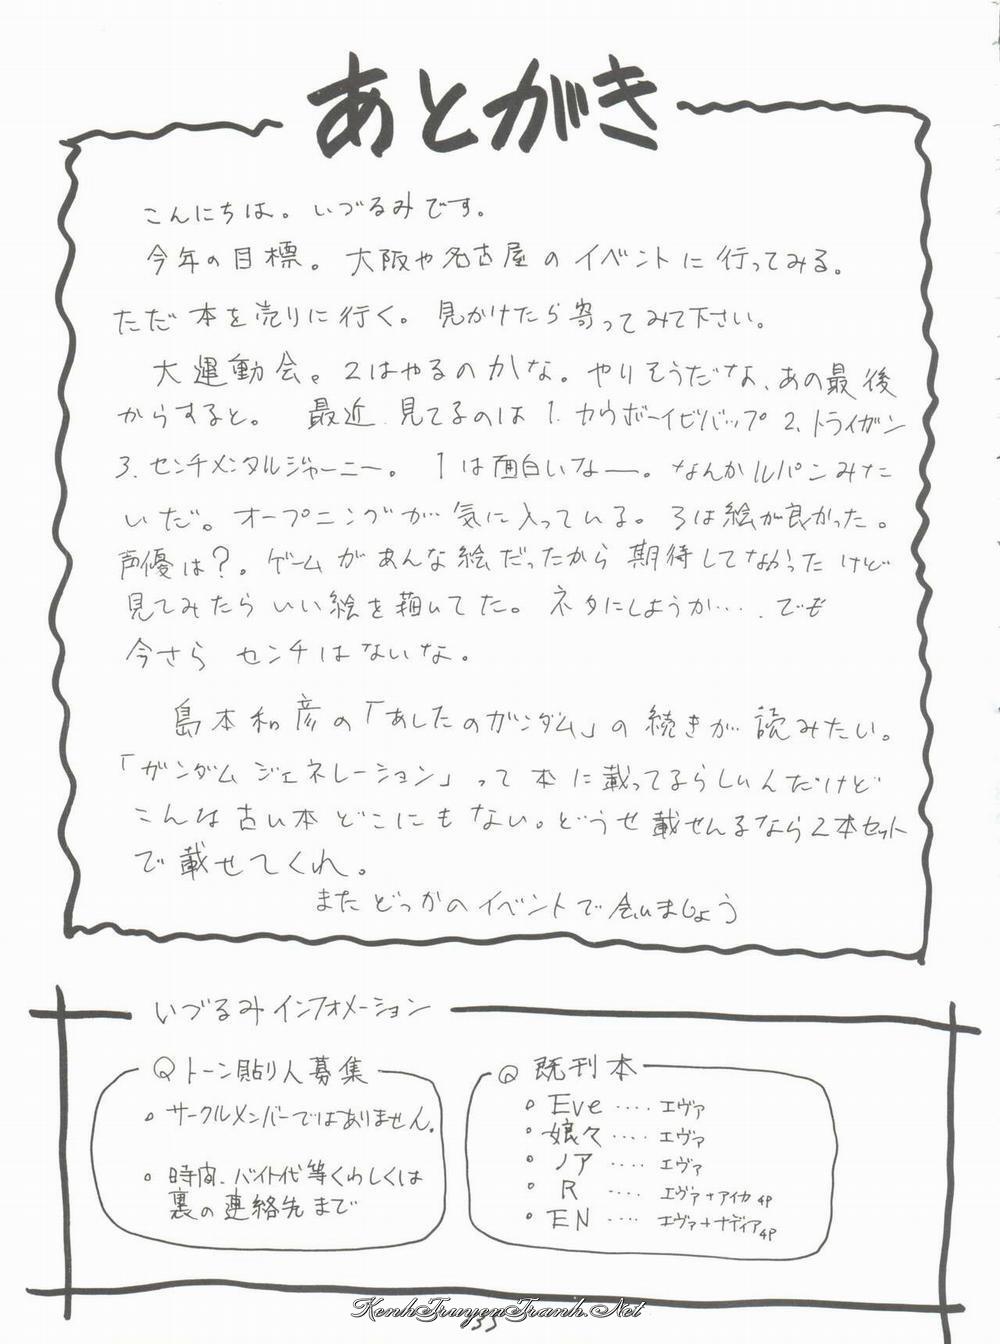 あとがき
こんにちは。いづるみです。
今年の目標。大阪や名古屋のイベントに行ってみる。
ただ本を売りに行く。見かけたら寄ってみて下さい。
大運動会。2はやるのかな。やりそうだな、あの最後
からすると。 最近.見てるのは 1.カウボーイビバップ 2.トライガン
3.センチメンタルジャーニー。 1は面白いなー。なんかルパンみた
いだ。オープニングが気に入っている。3は絵が良かった。
声優は?。ゲームがあんな絵だったから期待してなかったけど
見てみたらいい絵を描いてた。ネタにしようか‥‥.でも
今さら センチはないな。
島本和彦の「あしたのガンダム」の続きが読みたい。
「ガンダム ジェネレーション」って本に載ってるらしいんだけど
こんな古い本どこにもない。どうせ載せんるなら2本セット
で載せてくれ。
またどっかのイベントで会いましょう
いづるみインフォメーション
Qトーン貼り人募集
・サークルメンバーではありません。
・時間、バイト代等くわしくは
裏の連絡先まで
Q 既刊本
・Eve ‥‥ エヴァ
・娘々 ‥‥ エヴァ
・ノア ‥‥ エヴァ
・R ‥‥ エヴァ+アイカ4P
・EN ‥‥ エヴァ+ナディア4P
KenhTruyenTranh.Net
33